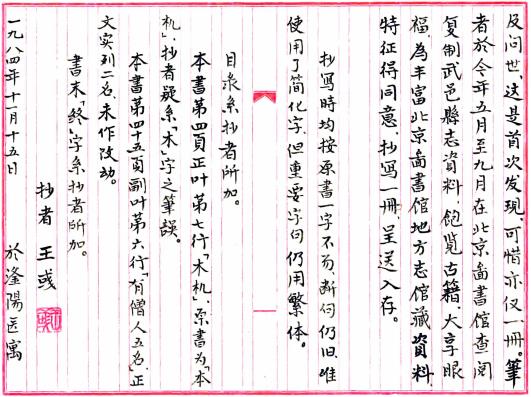 及问世,这是首次发现,可惜亦仅一册。筆
者於今年五月至九月在北京啚書馆查阅
复制武邑縣志資料,飽覧古籍,大享眼
福,为丰富北京啚書馆地方志馆藏資料,
特征得同意,抄寫一册,呈送入存。
抄寫時均按原書一字不易,断句仍旧,唯
使用了简化字,但重要字句仍用繁体。
目录系抄者所加。
本書第四頁正叶第七行「木机」,原書为「本
机」,抄者疑系「木」字之筆誤。
本書第四十五頁副叶第六行「有僧人五名」,正
文实列二名,未作改动。
書末「终」字系抄者所加。
抄者 王彧
一九八四年十一月十五日 於滏陽医寓